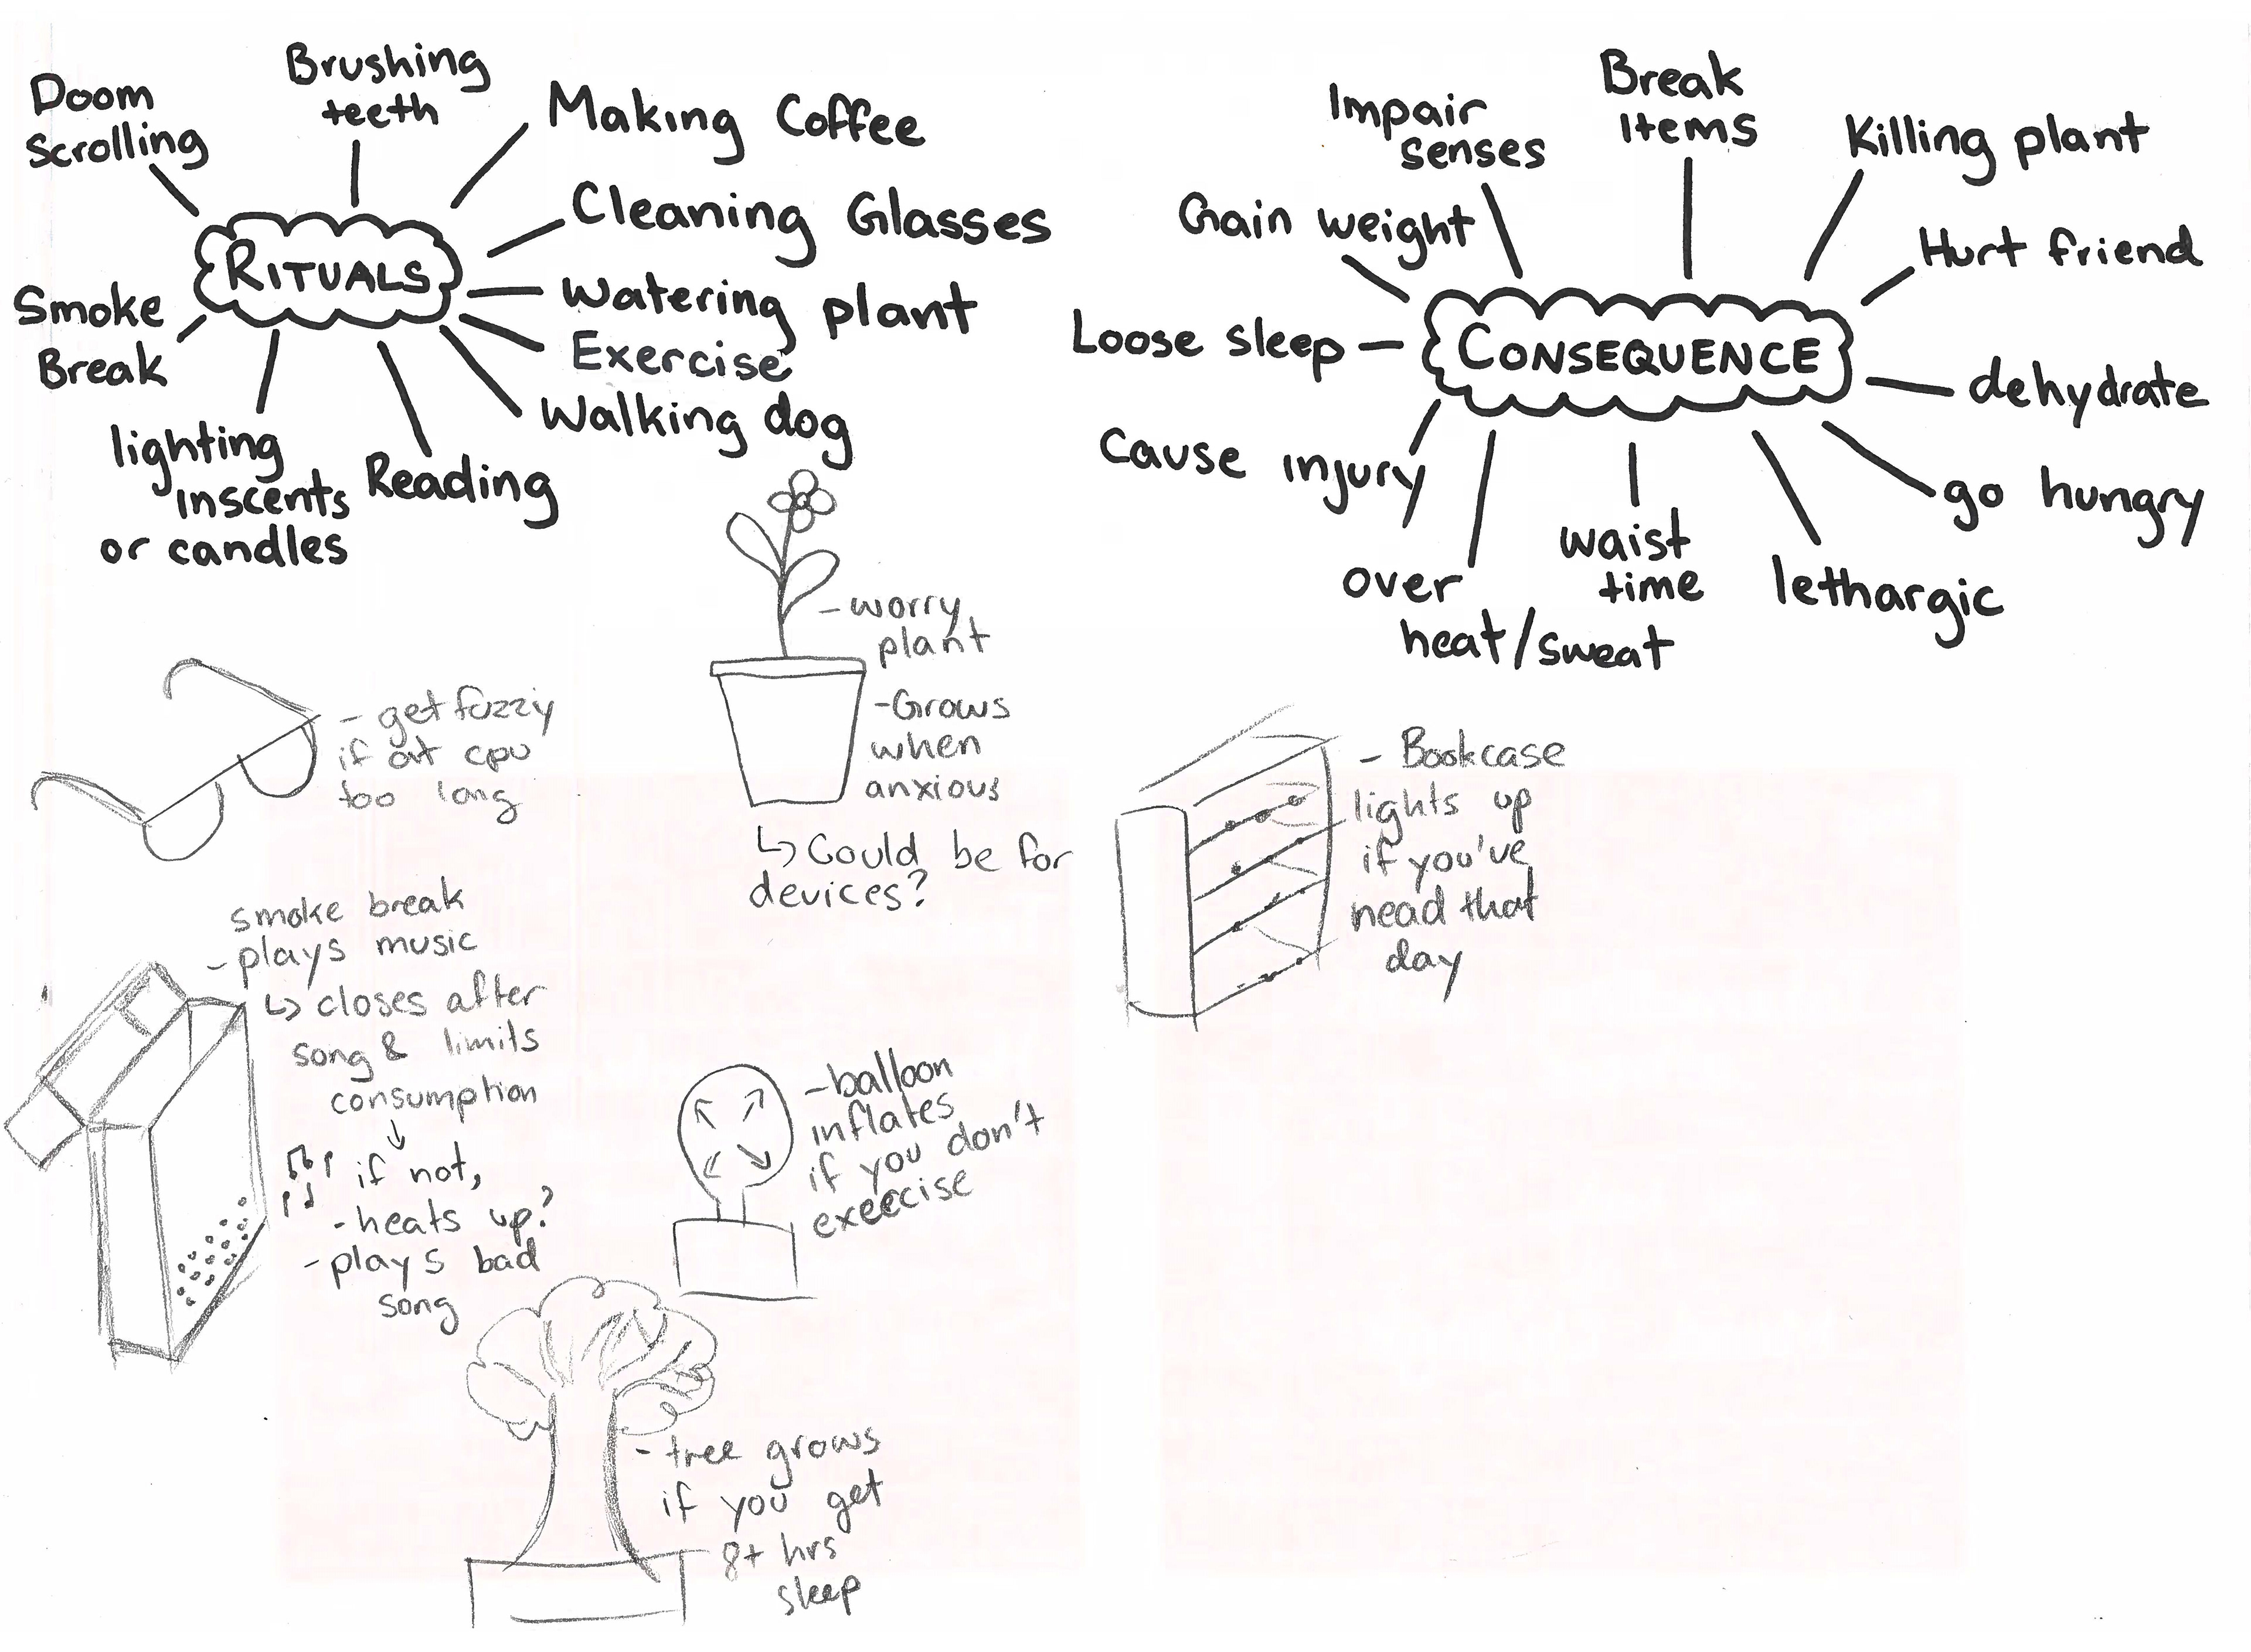 Doom
Scrolling
Brushing
teeth
Making Coffee
Cleaning Glasses
Watering plant
Exercise
Walking dog
Reading
lighting
inscents
or candles
Smoke
Break
RITUALS
Impair
senses
Break
Items
Killing plant
Hurt friend
dehydrate
go hungry
lethargic
waist
time
over
heat/sweat
Cause injury
Loose sleep
Gain weight
CONSEQUENCE
- get fuzzy
if at cpu
too long
- worry
plant
- Grows
when
anxious
↳ Could be for
devices?
- Bookcase
lights up
if you've
read that
day
smoke break
- plays music
↳ closes after
song & limits
consumption
↓
if not,
- heats up?
- plays bad
song
- balloon
inflates
if you don't
exeecise
- tree grows
if you get
8+ hrs
sleep